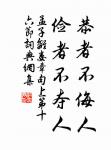 恭者不侮人
俭者不夺人
孟子離婁章句上第十
六節詞典網集